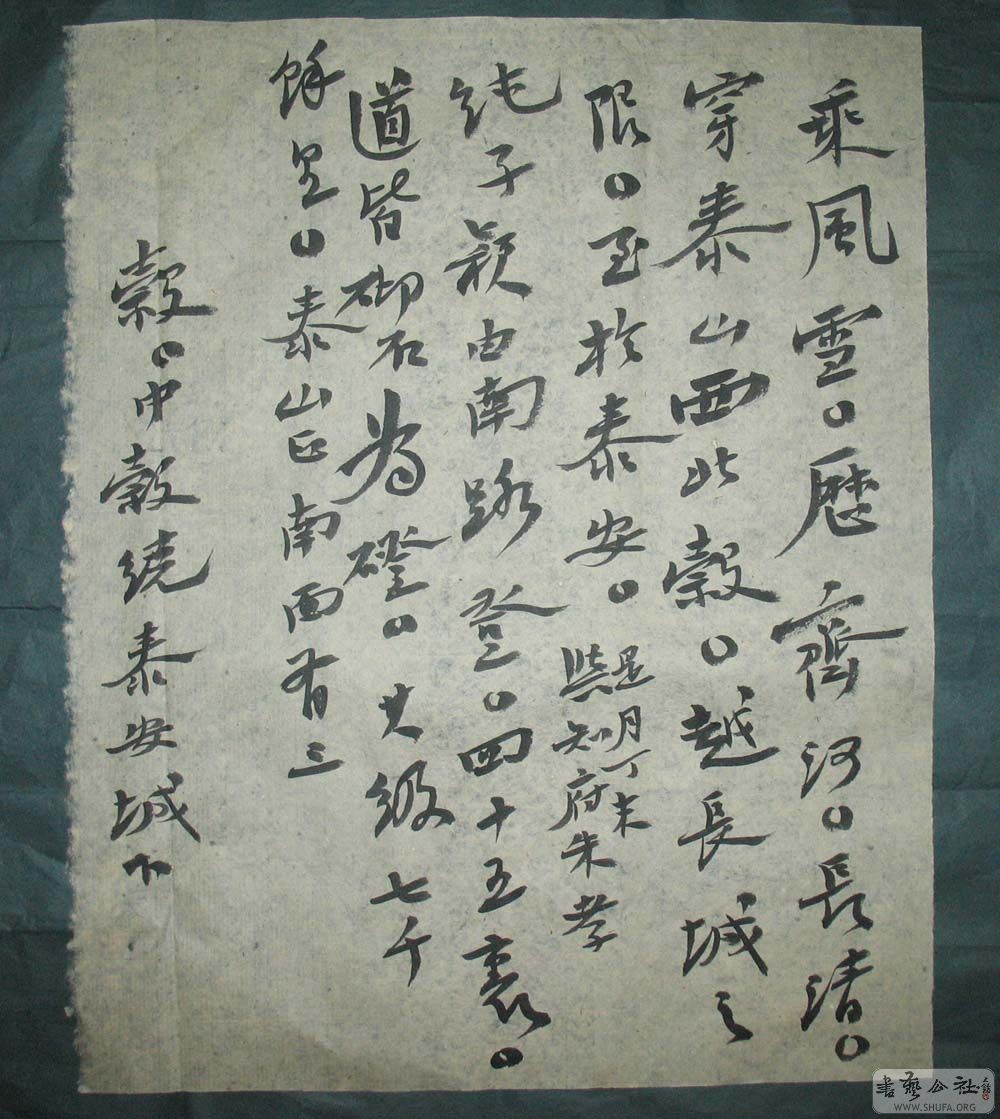 乘風雪。歷齊河。長清。
穿泰山西北穀。越長城之
限。至於泰安。
是月丁未
與知府朱孝
純子穎由南路登。四十五裏。
道皆砌石為磴。共級七千
餘里。泰山正南面有三
穀。中穀繞泰安城下
書藝公社
WWW.SHUFA.ORG